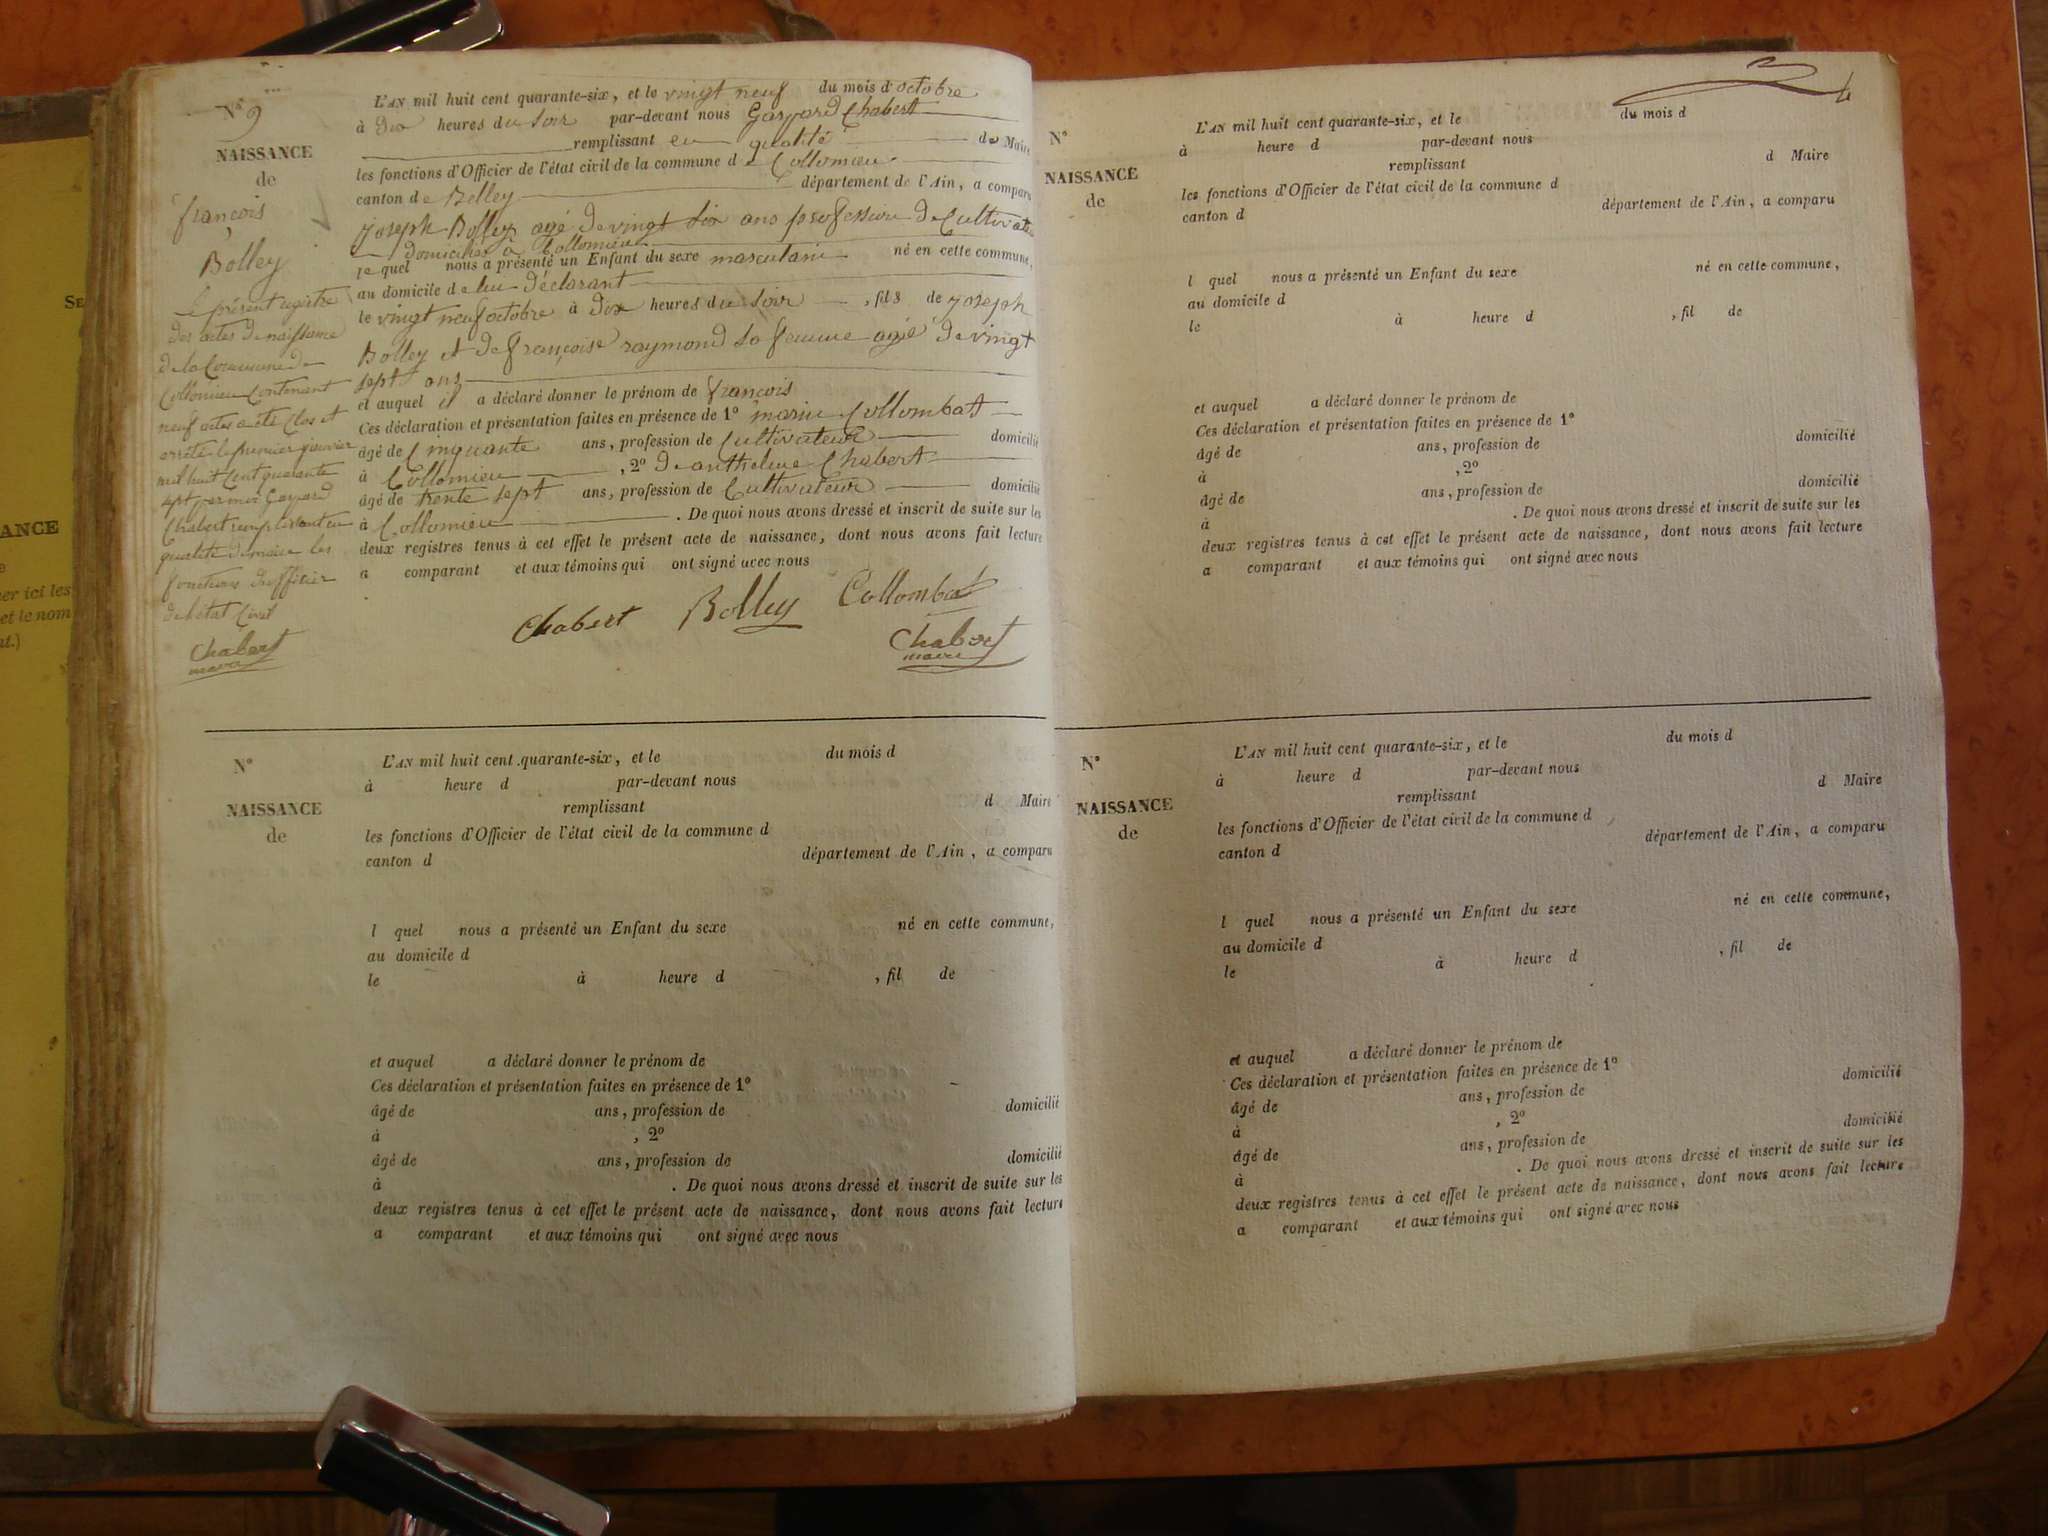 N° 9
NAISSANCE
de
françois
Bolley
le présent registre
des actes de naissance
de la Commune de
Collomieu Contenant
neuf actes a été Clos et
arrêté le premier janvier
mil huit Cent quarante
sept par moi Gaspard
Chabert remplissant en
qualité de maire les
fonctions d'officier
de l'état Civil
Chabert
maire
L'AN mil huit cent quarante-six, et le vingt neuf du mois d'octobre
à dix heures du soir par-devant nous Gaspard Chabert
remplissant en qualité de Maire
les fonctions d'Officier de l'état civil de la commune de Collomieu
canton de Belley département de l'Ain, a comparu
joseph Bolley agé de vingt six ans profession de Cultivateur
domicilié à Collomieu
le quel nous a présenté un Enfant du sexe masculain né en cette commune,
au domicile de lui déclarant
le vingt neuf octobre à dix heures du soir, fils de joseph
Bolley et de françoise raymond sa femme agé de vingt
sept ans
et auquel il a déclaré donner le prénom de françois
Ces déclaration et présentation faites en présence de 1° marin Collombat
âgé de Cinquante ans, profession de Cultivateur domicilié
à Collomieu, 2° de anthelme Chabert
âgé de trente sept ans, profession de Cultivateur domicilié
à Collomieu. De quoi nous avons dressé et inscrit de suite sur les
deux registres tenus à cet effet le présent acte de naissance, dont nous avons fait lecture
a comparant et aux témoins qui ont signé avec nous
Chabert Bolley Collombat
Chabert
maire
N°
NAISSANCE
de
L'AN mil huit cent quarante-six, et le du mois d
à heure d par-devant nous
remplissant d Maire
les fonctions d'Officier de l'état civil de la commune d
canton d département de l'Ain, a comparu
l quel nous a présenté un Enfant du sexe né en cette commune,
au domicile d
le à heure d , fil de
et auquel a déclaré donner le prénom de
Ces déclaration et présentation faites en présence de 1°
âgé de ans, profession de domicilié
à , 2°
âgé de ans, profession de domicilié
à . De quoi nous avons dressé et inscrit de suite sur les
deux registres tenus à cet effet le présent acte de naissance, dont nous avons fait lecture
a comparant et aux témoins qui ont signé avec nous
N°
NAISSANCE
de
L'AN mil huit cent quarante-six, et le du mois d
à heure d par-devant nous
remplissant d Maire
les fonctions d'Officier de l'état civil de la commune d
canton d département de l'Ain, a comparu
l quel nous a présenté un Enfant du sexe né en cette commune,
au domicile d
le à heure d , fil de
et auquel a déclaré donner le prénom de
Ces déclaration et présentation faites en présence de 1°
âgé de ans, profession de domicilié
à , 2°
âgé de ans, profession de domicilié
à . De quoi nous avons dressé et inscrit de suite sur les
deux registres tenus à cet effet le présent acte de naissance, dont nous avons fait lecture
a comparant et aux témoins qui ont signé avec nous
N°
NAISSANCE
de
L'AN mil huit cent quarante-six, et le du mois d
à heure d par-devant nous
remplissant d Maire
les fonctions d'Officier de l'état civil de la commune d
canton d département de l'Ain, a comparu
l quel nous a présenté un Enfant du sexe né en cette commune,
au domicile d
le à heure d , fil de
et auquel a déclaré donner le prénom de
Ces déclaration et présentation faites en présence de 1°
âgé de ans, profession de domicilié
à , 2°
âgé de ans, profession de domicilié
à . De quoi nous avons dressé et inscrit de suite sur les
deux registres tenus à cet effet le présent acte de naissance, dont nous avons fait lecture
a comparant et aux témoins qui ont signé avec nous